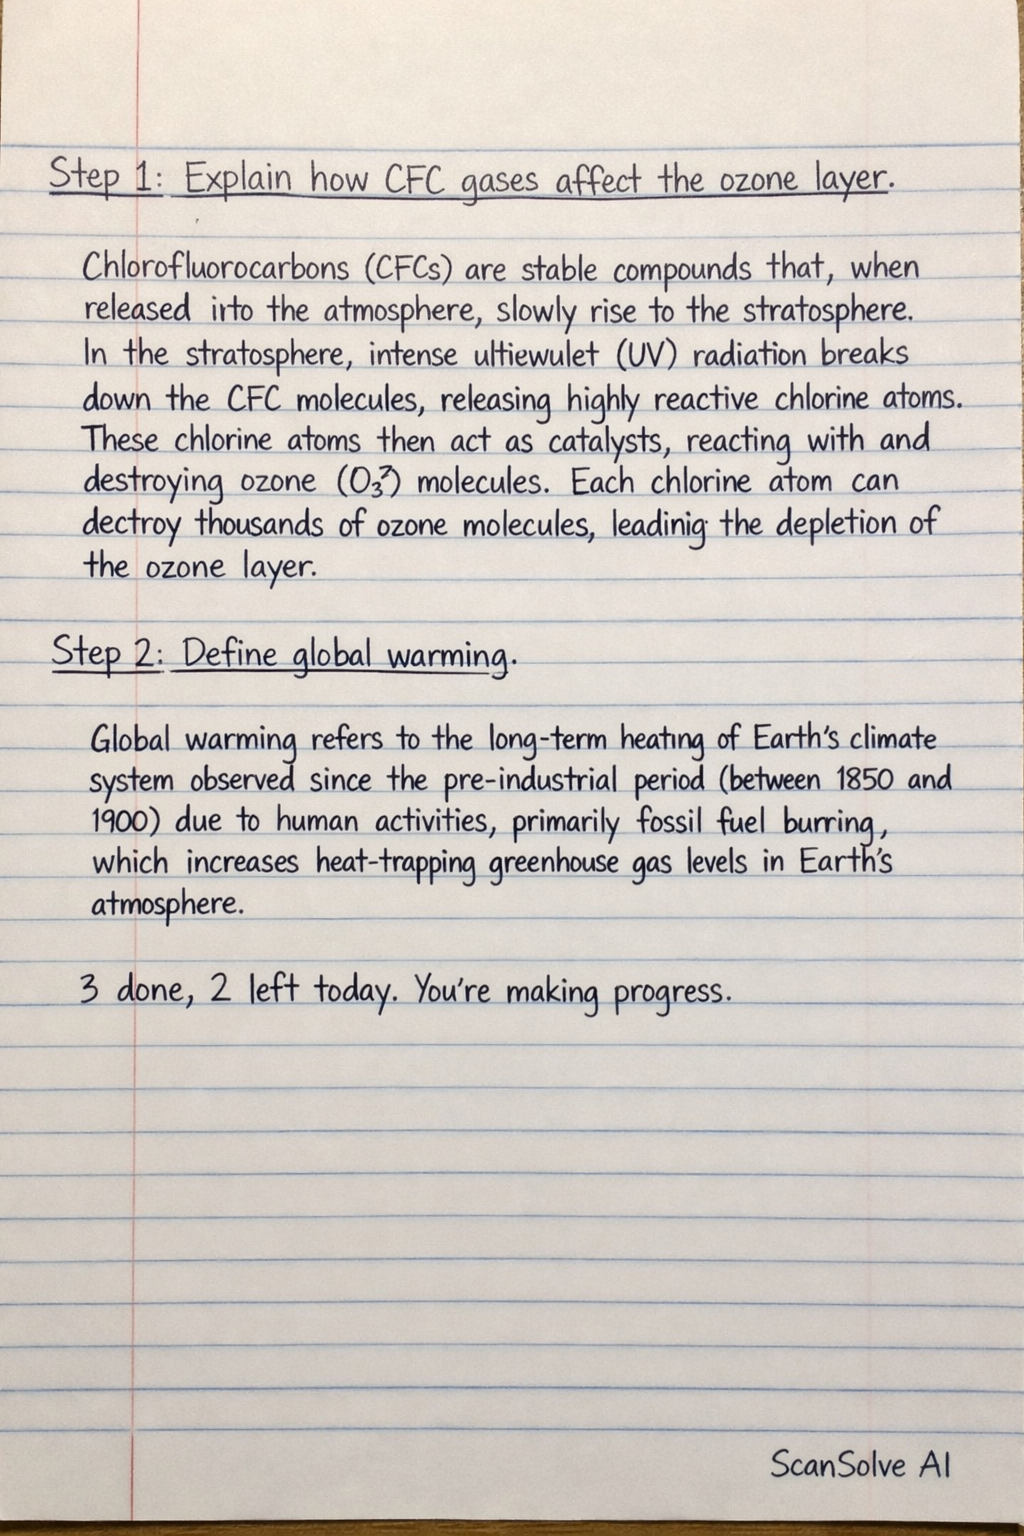 Step 1: Explain how CFC gases affect the ozone layer.
Chlorofluorocarbons (CFCs) are stable compounds that, when
released irto the atmosphere, slowly rise to the stratosphere.
In the stratosphere, intense ultiewulet (UV) radiation breaks
down the CFC molecules, releasing highly reactive chlorine atoms.
These chlorine atoms then act as catalysts, reacting with and
destroying ozone (O₃²) molecules. Each chlorine atom can
dectroy thousands of ozone molecules, leadinig the depletion of
the ozone layer.
Step 2: Define global warming.
Global warming refers to the long-term heating of Earth's climate
system observed since the pre-industrial period (between 1850 and
1900) due to human activities, primarily fossil fuel burring,
which increases heat-trapping greenhouse gas levels in Earth's
atmosphere.
3 done, 2 left today. You're making progress.
ScanSolve AI